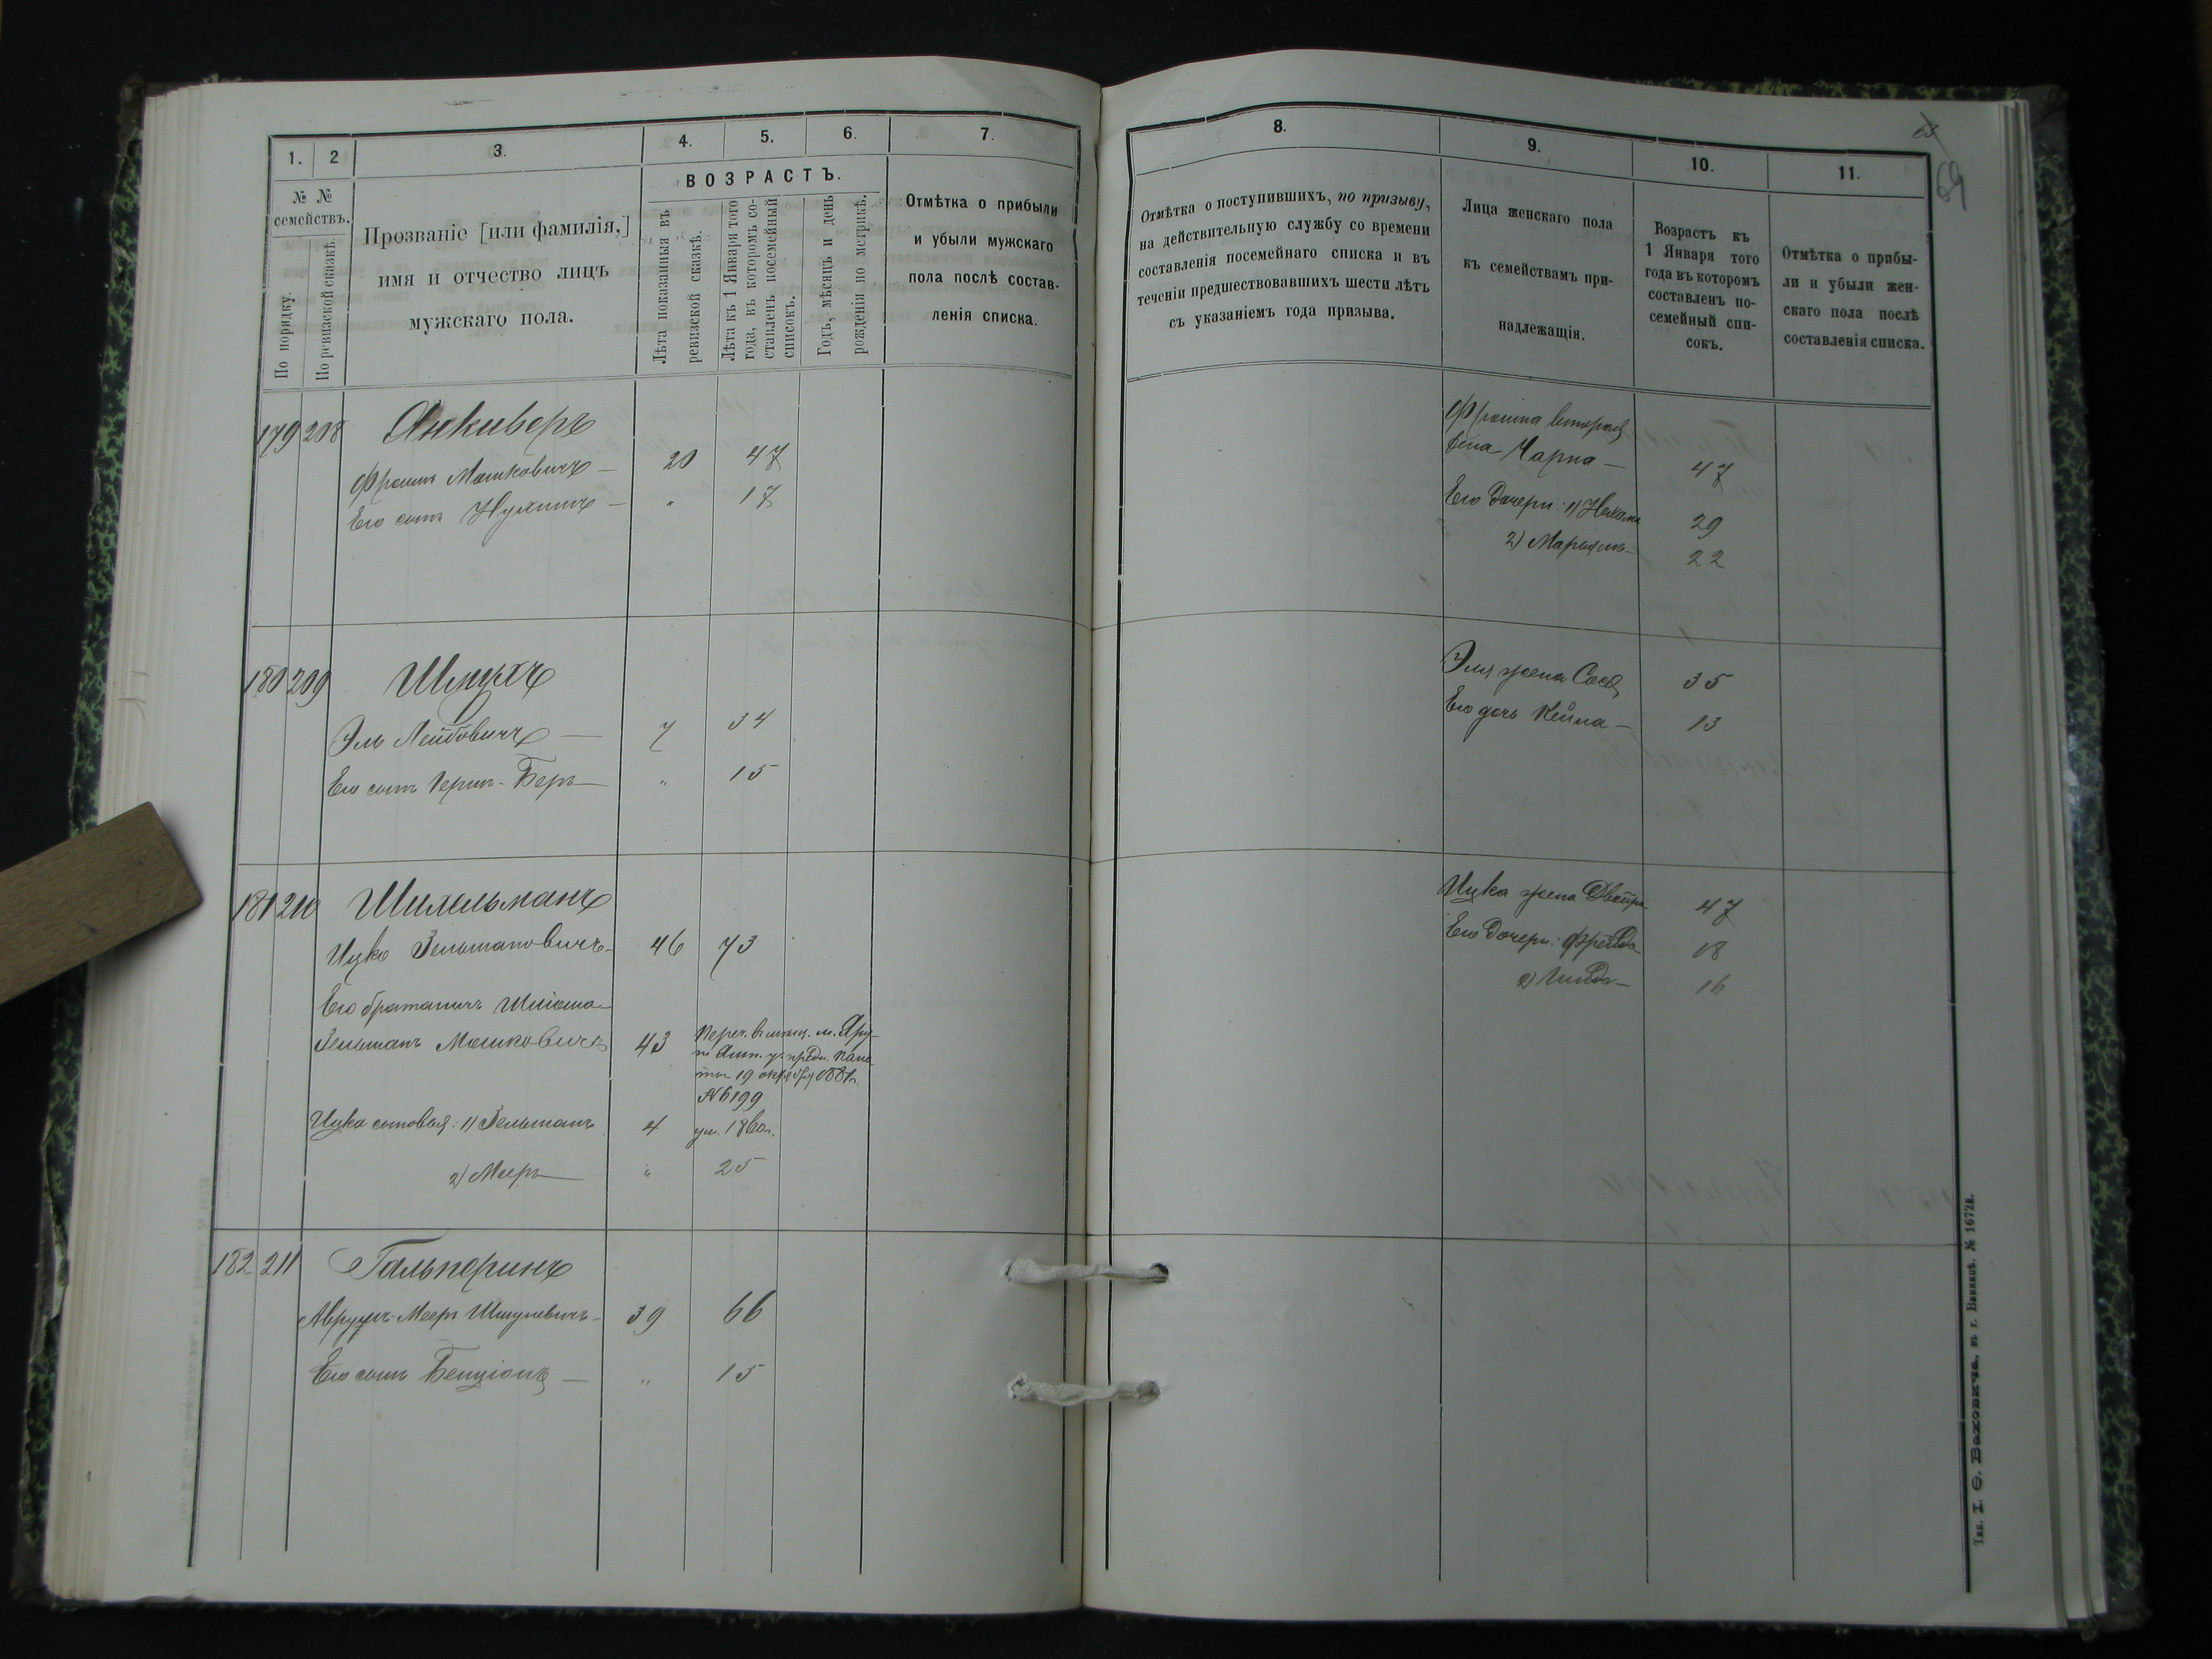 1. 2 3. 4. 5. 6. 7.
№ №
семействъ.
По порядку.
По ревизской сказкѣ.
Прозваніе [или фамилія,]
имя и отчество лицъ
мужскаго пола.
ВОЗРАСТЪ.
Лѣта показанныя въ
ревизской сказкѣ.
Лѣта къ 1 Января того
года, въ которомъ со-
ставленъ посемейный
списокъ.
Годъ, мѣсяцъ и день
рожденія по метрикѣ.
Отмѣтка о прибыли
и убыли мужскаго
пола послѣ состав-
ленія списка.
179 208
Фроимъ Мошковичъ — 20 47
Его сынъ Нухимъ — " 17
180 209 Шмухъ
Эль Лейбовичъ — 7 34
Его сынъ Берко-Беръ — " 15
181 210
Ицко Зельмановичъ - 46 73
Его братаничъ Шлiома
Зельманъ Мошковичъ 43
19 октября 1881г.
№ 6199
Ицка сыновья: 1) Зельманъ 4 ум. 1860г.
2) Мееръ — " 25
182 211 Гальперинъ
Аврумъ-Мееръ Шмулевичъ - 39 66
Его сынъ Бенціонъ — " 15
8. 9. 10. 11.
63
69
Отмѣтка о поступившихъ, по призыву,
на дѣйствительную службу со времени
составленія посемейнаго списка и въ
теченіи предшествовавшихъ шести лѣтъ
съ указаніемъ года призыва.
Лица женскаго пола
къ семействамъ при-
надлежащія.
Возрастъ къ
1 Января того
года въ которомъ
составленъ по-
семейный спи-
сокъ.
Отмѣтка о прибы-
ли и убыли жен-
скаго пола послѣ
составленія списка.
Фроима вторая
жена Чарна — 47
Его дочери: 1) Нехама 29
2) Марьямъ — 22
Эля жена Сося 35
Его дочь Кейла — 13
Ицка жена Двойра 47
Его дочери: Фрейда 18
2) — 16
Тип. I. Б. Ваховича, въ г. Винницѣ. № 1672в.